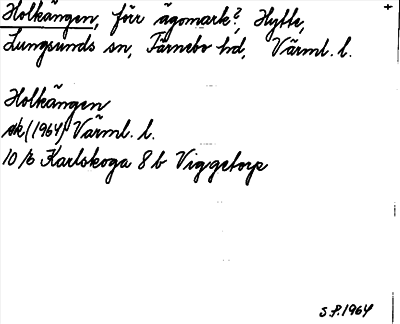 Holkängen, förr ägomark?, Hytte,
Lungsunds sn, Färnebo hd, Värml. l.
Holkängen
ek (1964) Värml. l.
10 /6 Karlskoga 8 b Viggetorp
S.P. 1964